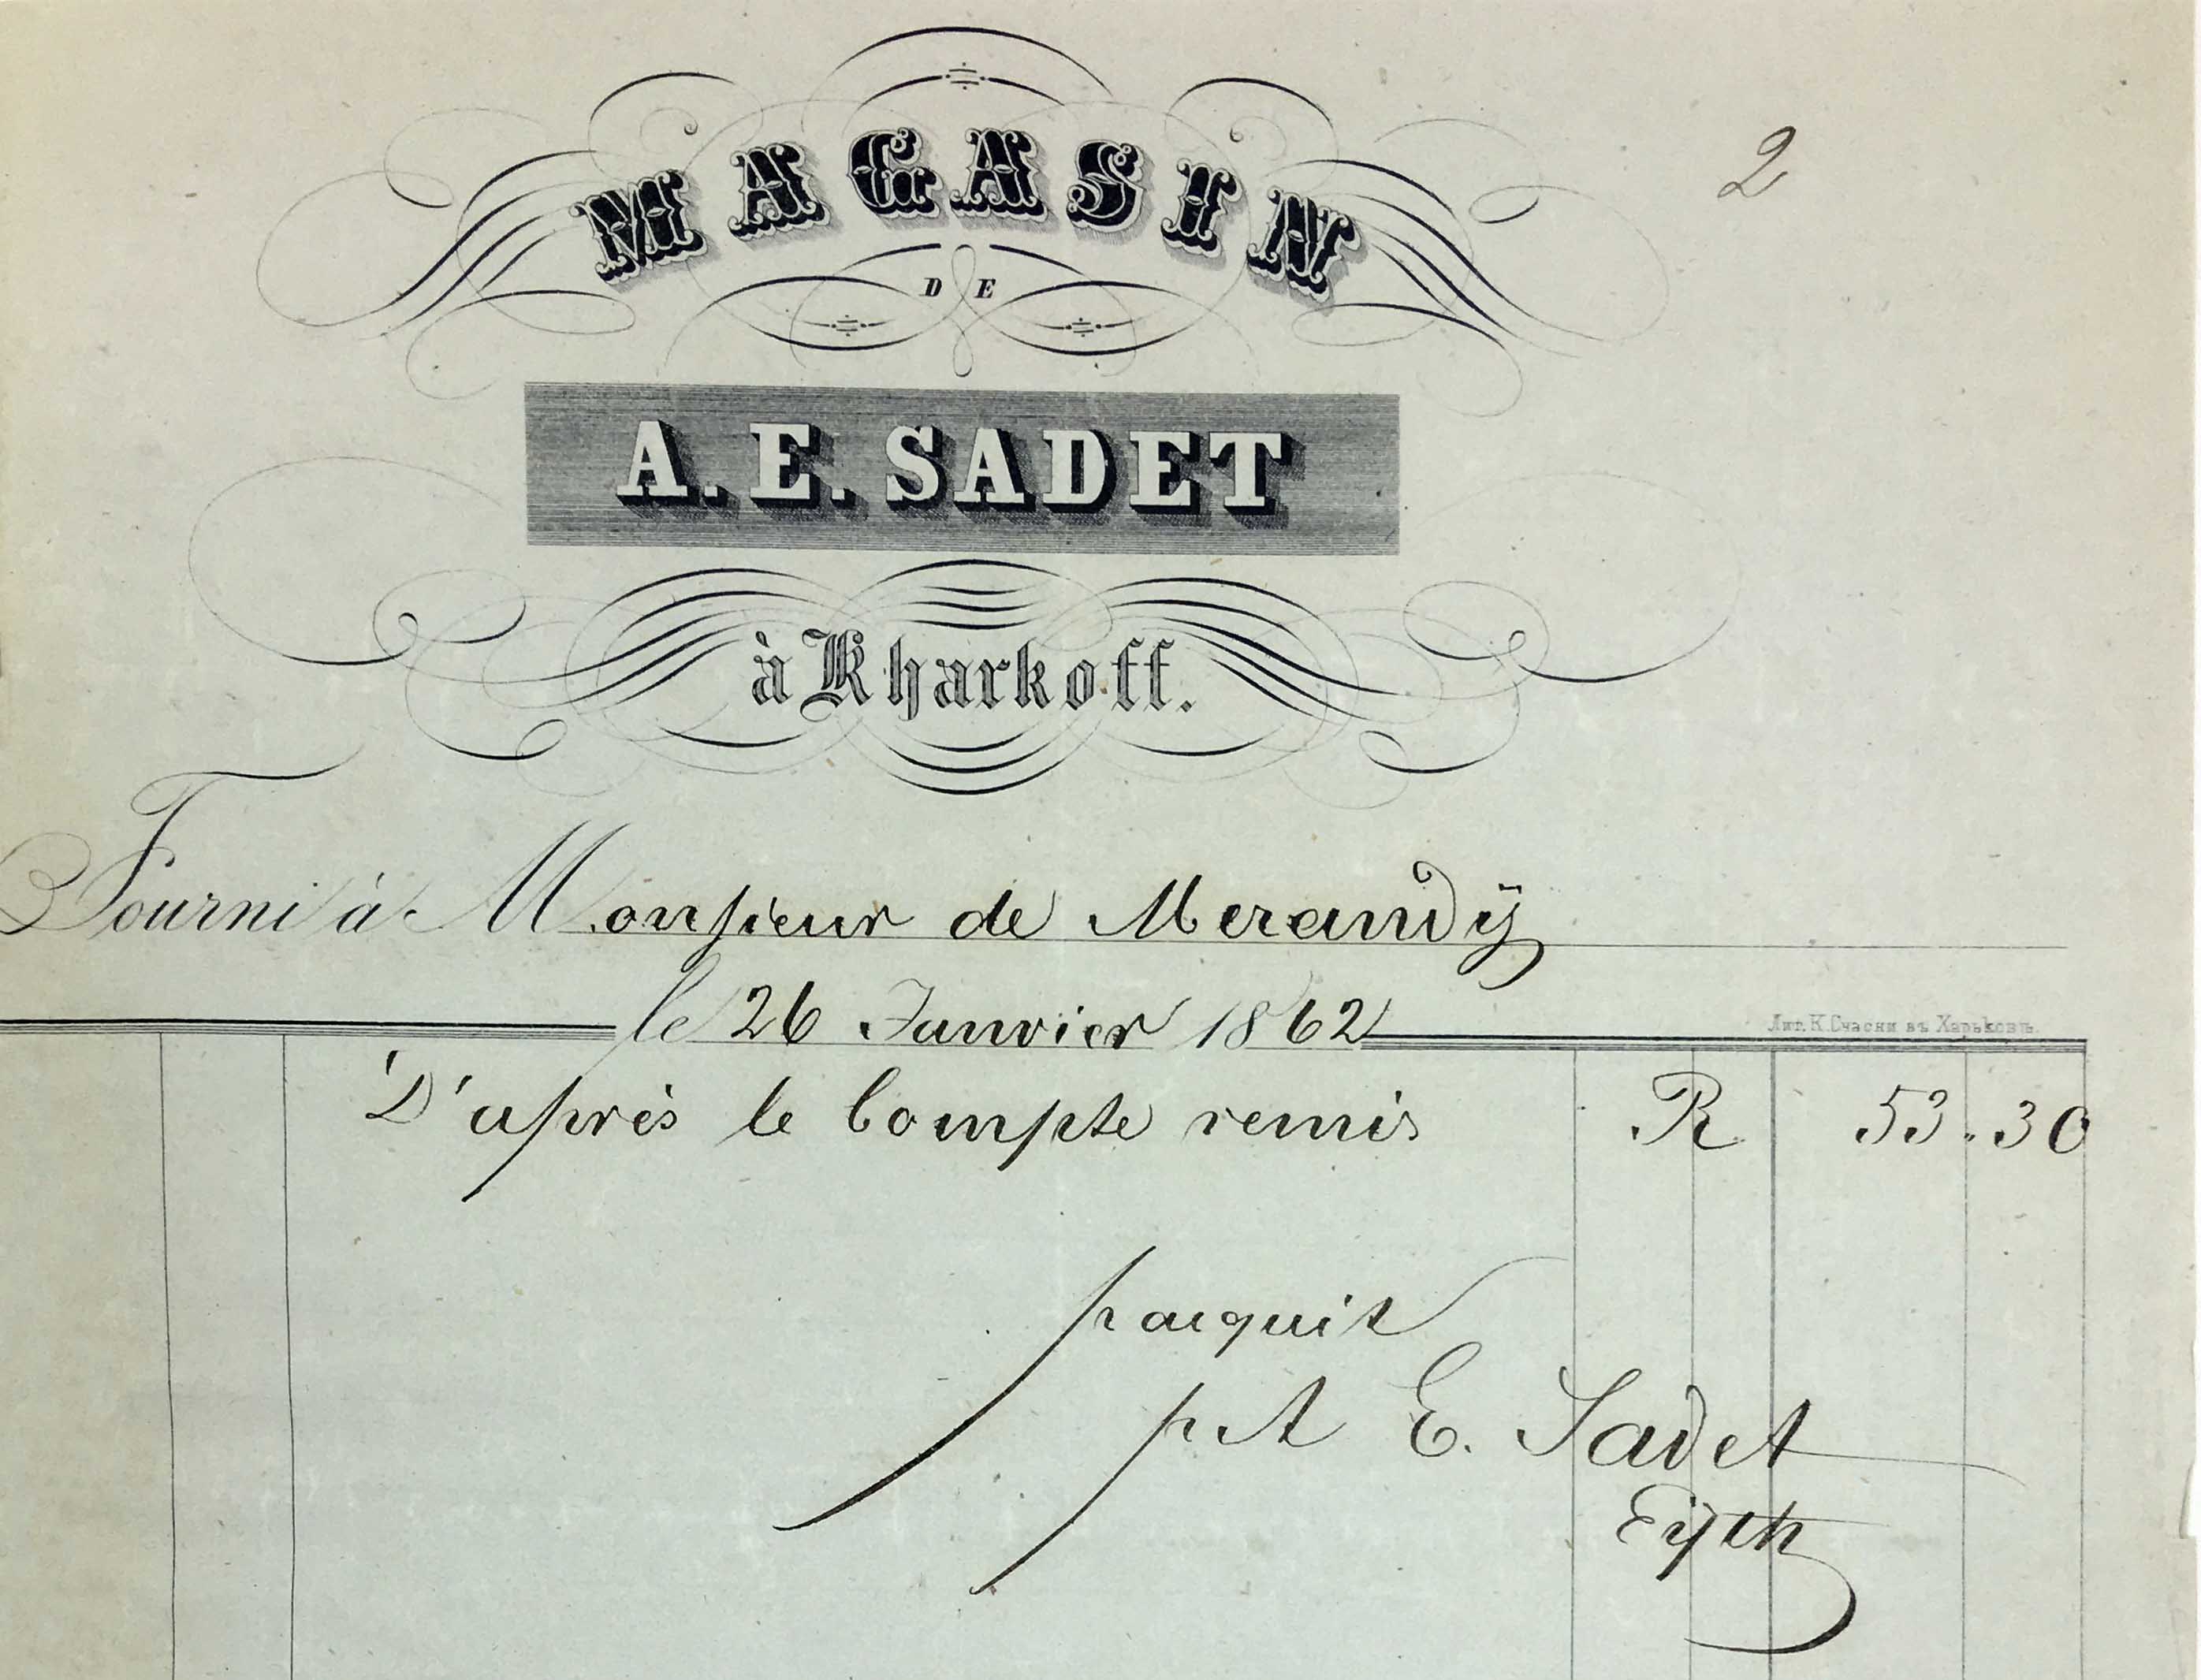 2
MAGASIN
DE
A. E. SADET
à Kharkoff.
Fourni à Monsieur de Merandÿ
le 26 Janvier 1862
Лит. К. Счасни въ Харьковѣ.
D'après le Compte remis R 53.30
p acquit
p A E. Sadet